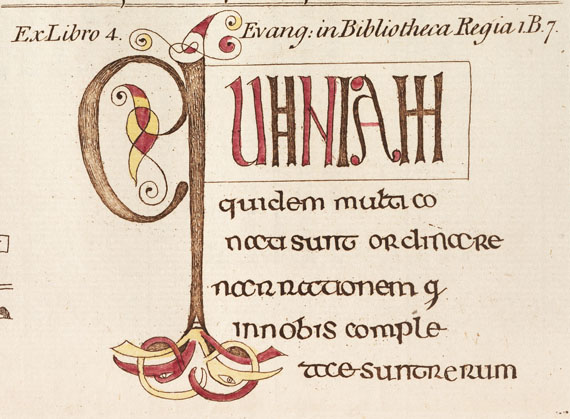 Ex Libro 4. Evang: in Bibliotheca Regia 1.B.7.
QUONIAM
quidem multi co
nati sunt ordinare
narrationem q
in nobis comple
tae sunt rerum